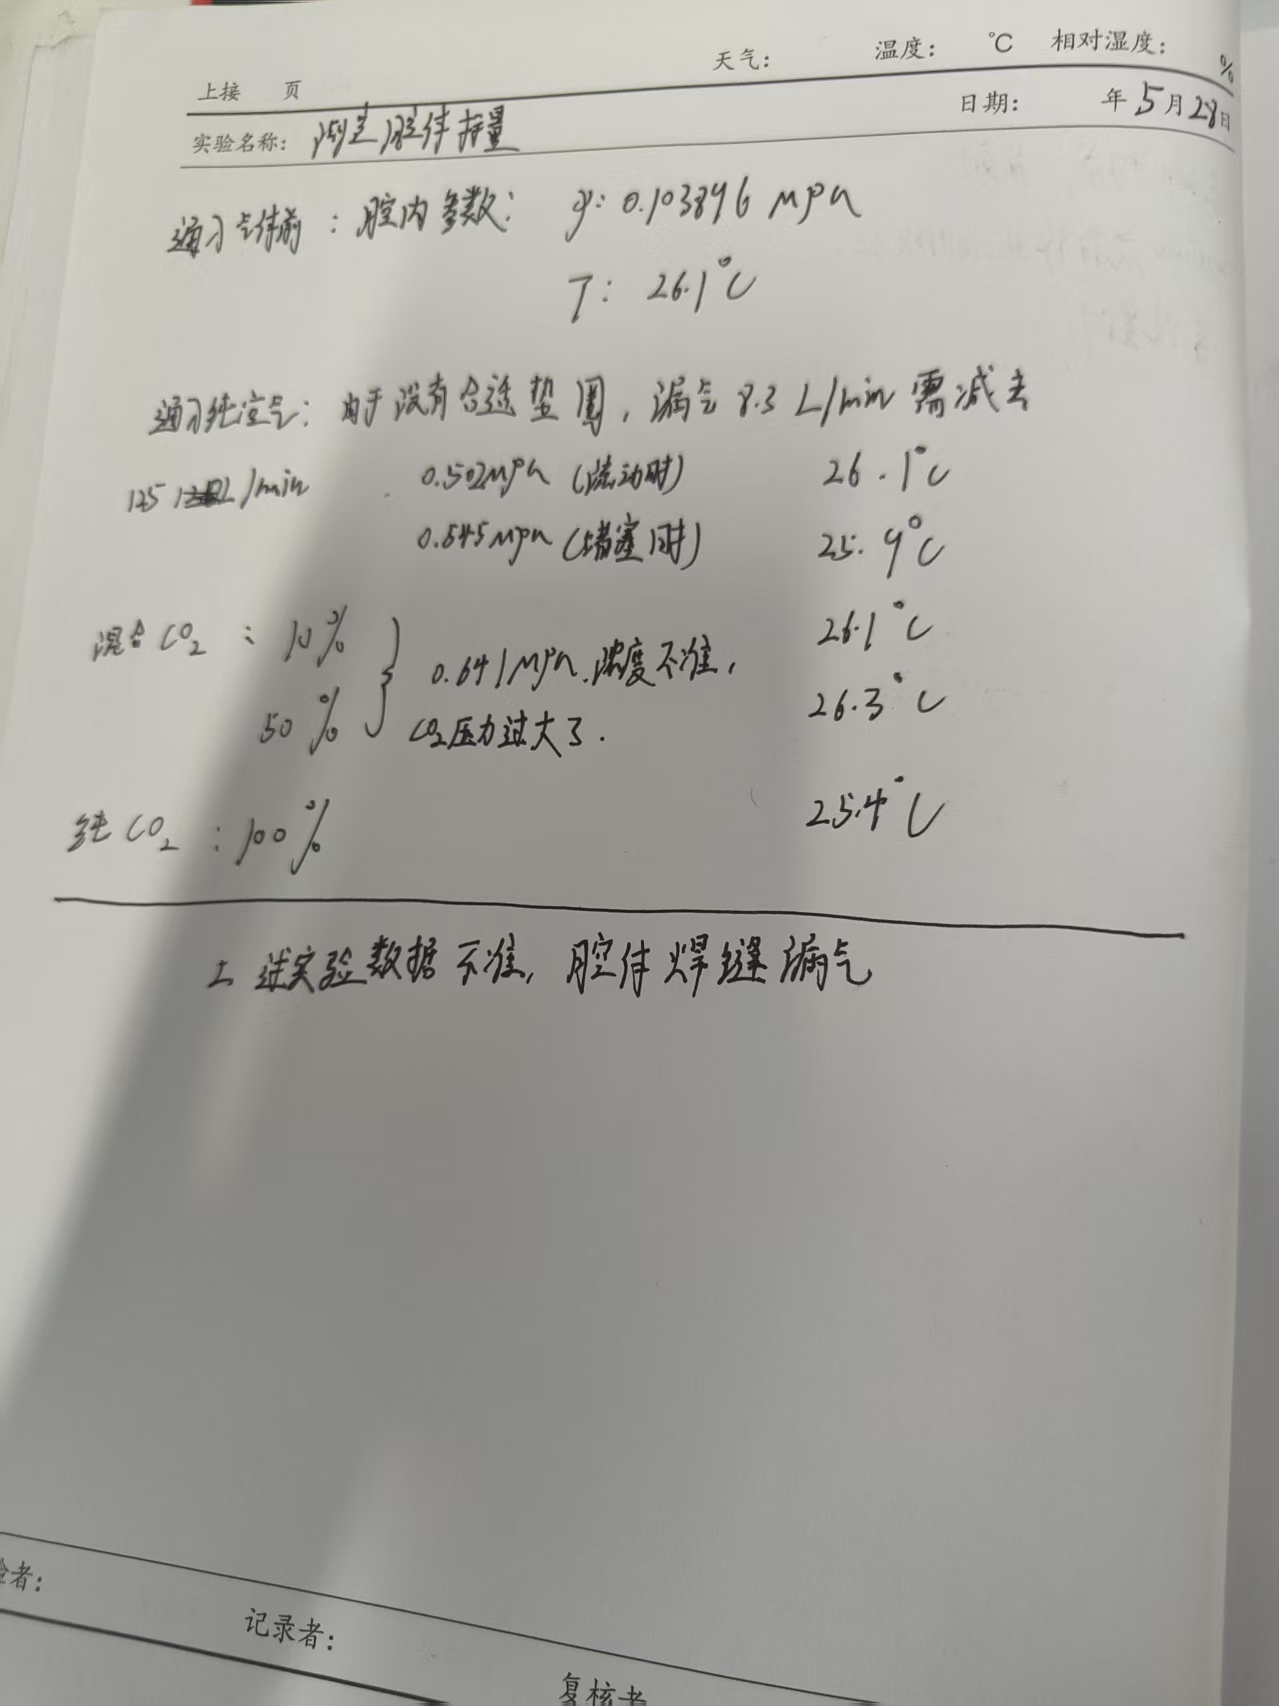 天气: 温度: ℃ 相对湿度: %
上接 页
日期: 年5月28日
实验名称: 测定腔体排量
通入气体前: 腔内参数: P: 0.103896 MPa
T: 26.1℃
通入纯空气: 由于没有合适垫圈, 漏气 8.3 L/min 需减去
125 L/min 0.502MPa (流动时) 26.1℃
0.545MPa (堵塞时) 25.9℃
混合CO₂: 10% 26.1℃
0.641MPa. 浓度不准,
50% 26.3℃
CO₂压力过大了.
纯CO₂: 100% 25.4℃
上述实验数据不准, 腔体焊缝漏气
验者:
记录者:
复核者